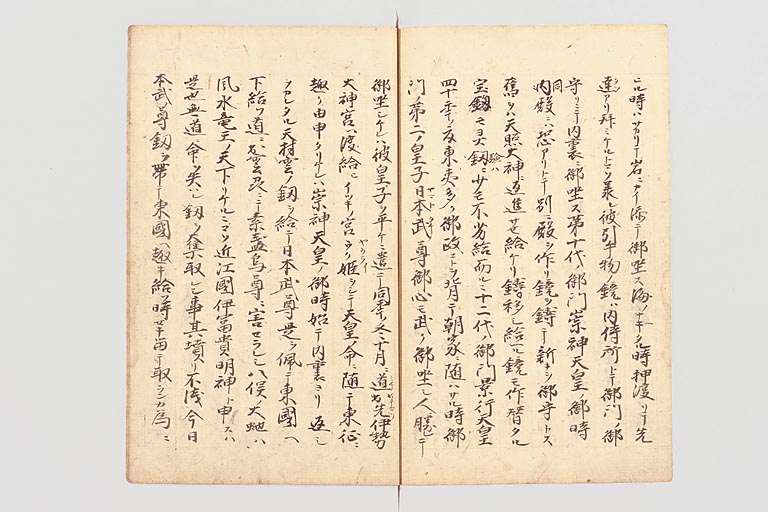 ニル時ハサカリテ岩ニカヽリ海ニテ御坐ス海ノナキタル時押渡リテ先
達アリ拜ミケルトソ羡ク彼引出物ノ鏡ハ内侍所トテ御門ノ御
守リニテ内裏ニ御坐ス第十代ノ御門崇神天皇ノ御時
同内殿ニハ恐アリトテ別ニ殿ヲ作リ鏡ヲ鑄テ新キヲ御守トス
舊ヲハ天照大神ニ返進セ給ケリ鑄移シ給ヘル鏡モ作替タル
宝劔モヨ大劔ニ少モ不劣給而ルニ十二代ノ御門景行天皇
四十年ノ夏東夷多ク御政コトヲ背テ朝家ニ随ハサル時御
門ノ第二ノ皇子日本武ノ尊御心モ武ク御坐シ人ニ勝テ
御坐シケレハ彼皇子ヲ平ケニ遣ニテ同年ノ冬十月ニ道ヲ先伊勢
大神宮ヘ渡給ニイツキノ宮ヲク姫ヲシテ天皇ノ命ニ随テ東征ニ
趣ク由申タリケレハ崇神天皇ノ御時始テ内裏ヨリ返シ
ヲカレタル天村雲ノ劔ヲ給テ日本武尊是ヲ佩テ東國ヘ
下給フ道ニ出雲氏ニテ素盞烏尊ニ害セラレシ八俣ノ大虵ハ
風水竜王ノ天下リケルニコソ近江國伊富貴明神ト申スハ
是也無道ニ命ヲ失ヒ劔ヲ集取レシ事其墳リ不浅今日
本武尊劔ヲ帶テ東國ヘ趣キ給フ時セキ畄テ取ラシカ為ニ